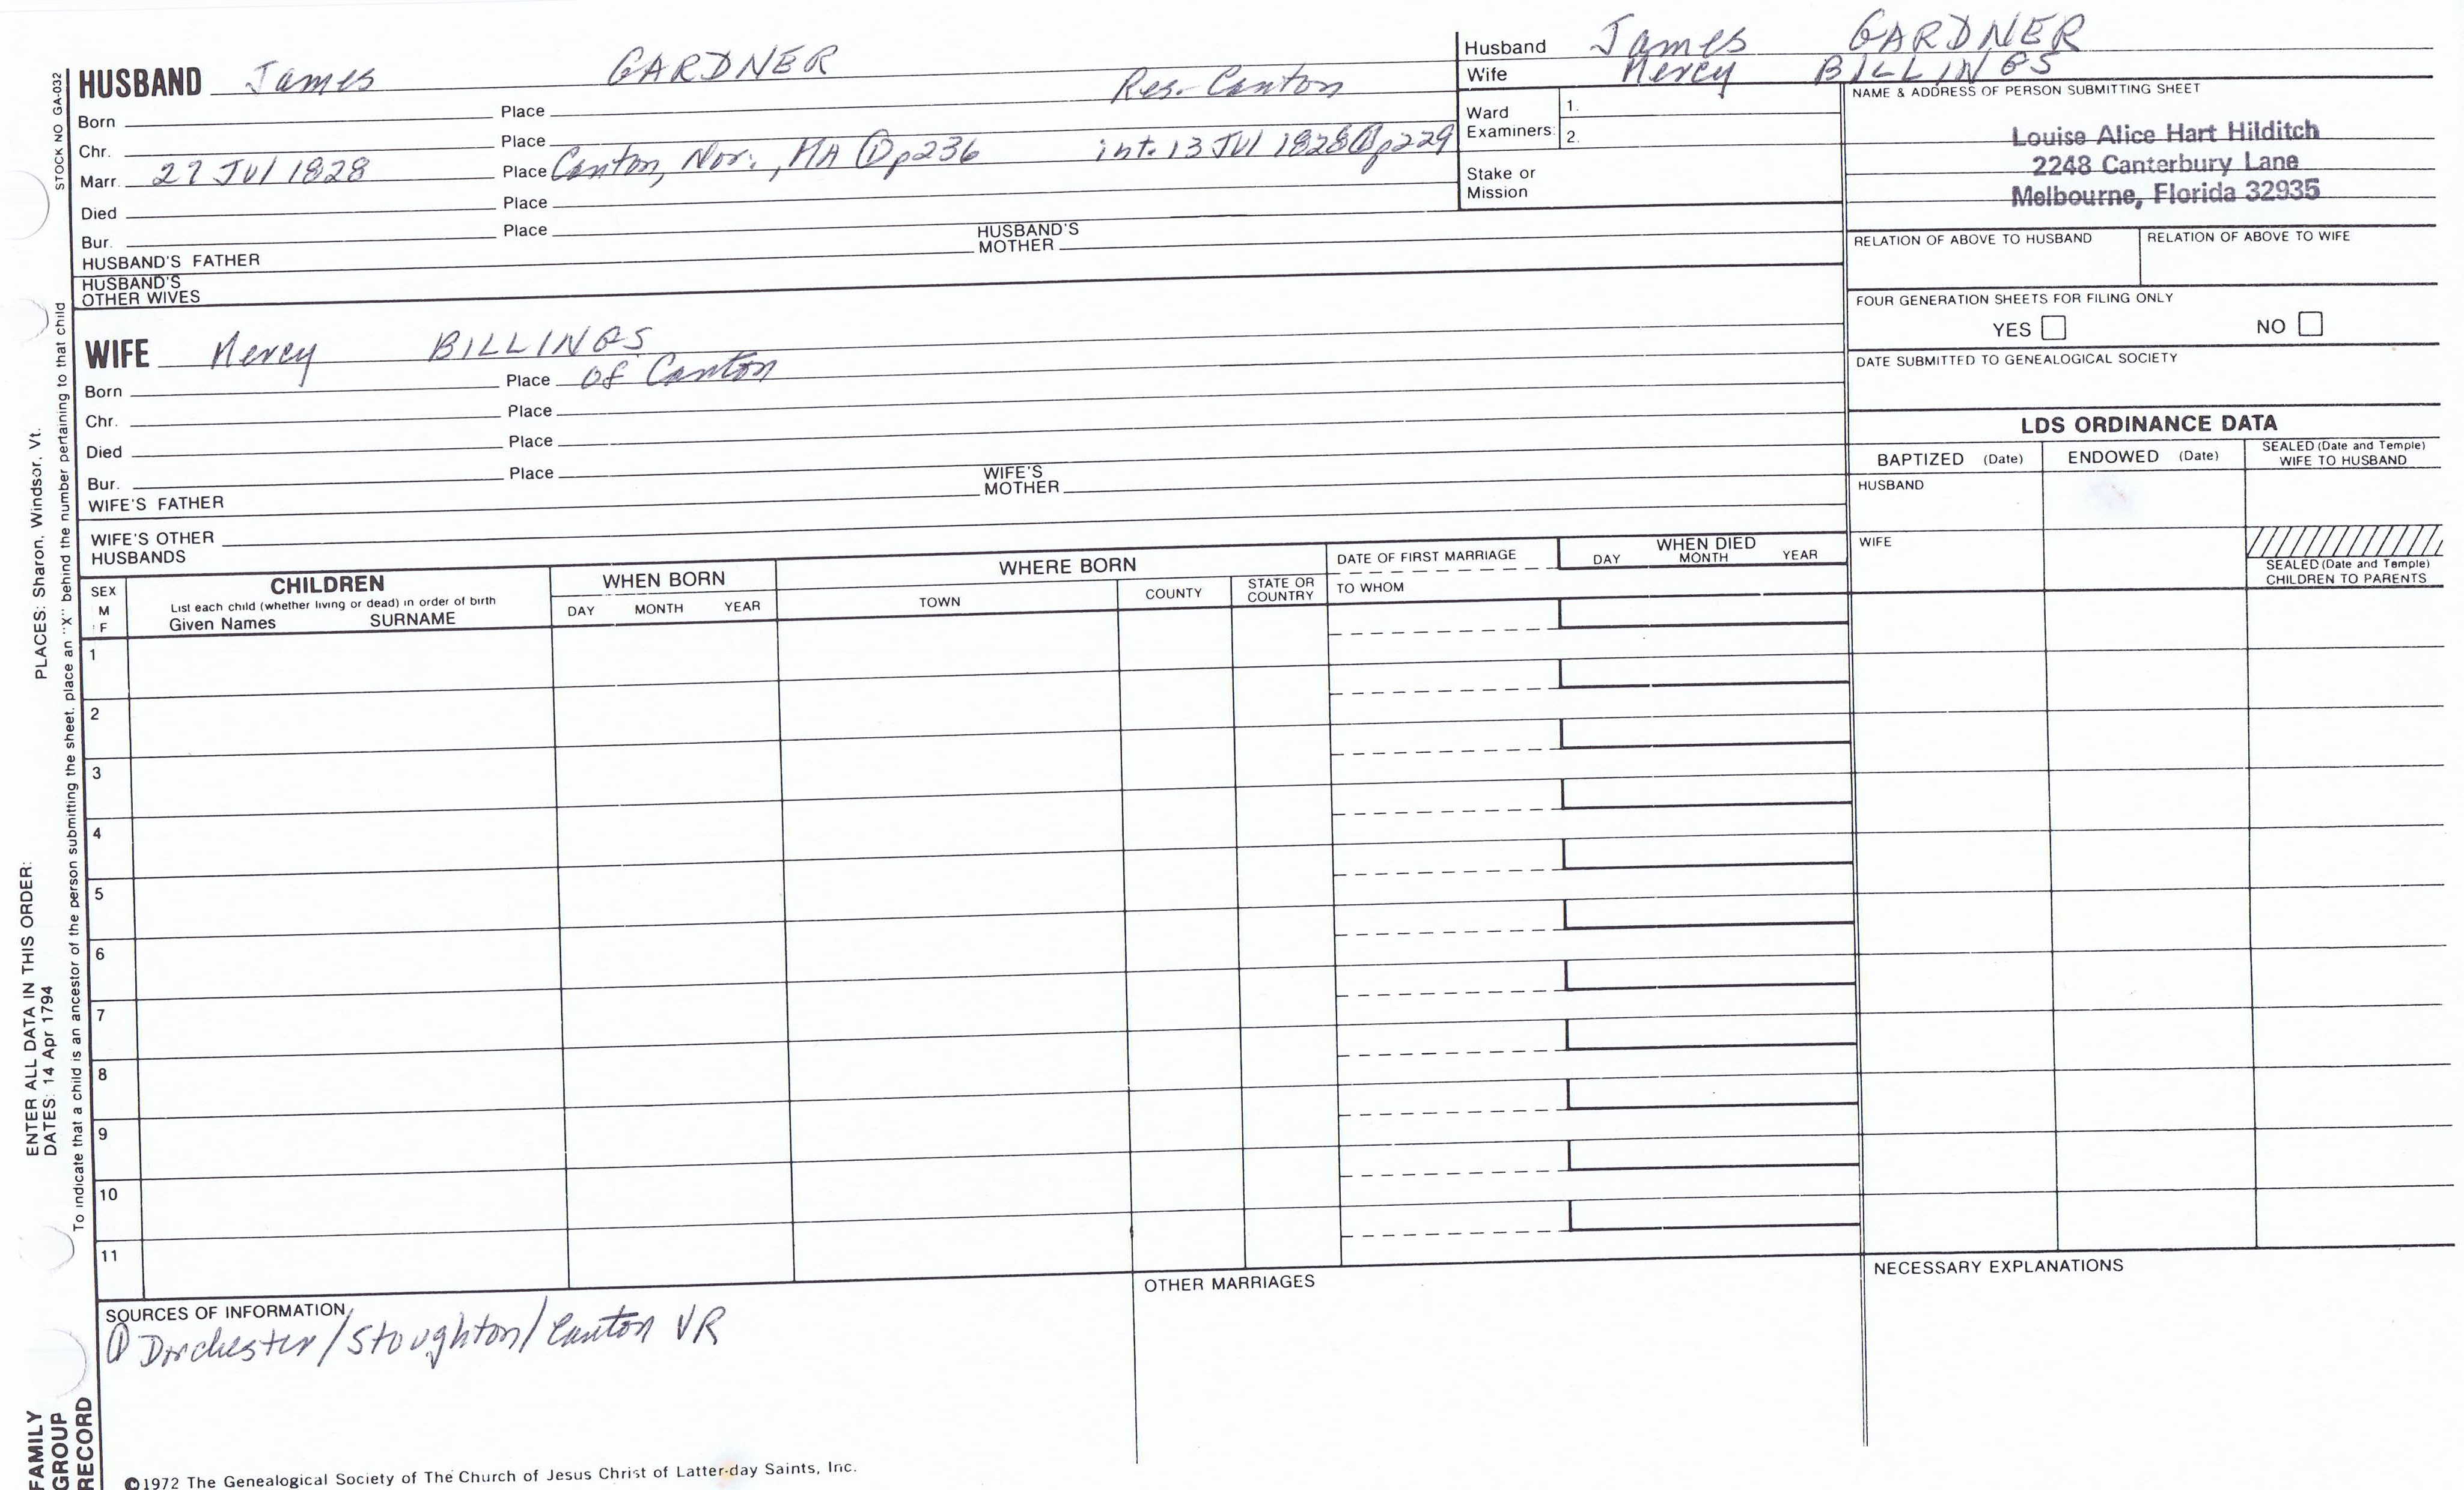 STOCK NO GA-032
HUSBAND James GARDNER
Born Place Res. Canton
Chr. Place
Marr. 27 Jul 1828 Place Canton, Nor., MA ① p236 int. 13 Jul 1828 ① p229
Died Place
Bur. Place
HUSBAND'S FATHER HUSBAND'S MOTHER
HUSBAND'S OTHER WIVES
Husband James GARDNER
Wife Mercy BILLINGS
Ward Examiners: 1.
2.
Stake or Mission
NAME & ADDRESS OF PERSON SUBMITTING SHEET
Louise Alice Hart Hilditch
2248 Canterbury Lane
Melbourne, Florida 32935
RELATION OF ABOVE TO HUSBAND RELATION OF ABOVE TO WIFE
FOUR GENERATION SHEETS FOR FILING ONLY
YES NO
DATE SUBMITTED TO GENEALOGICAL SOCIETY
WIFE Mercy BILLINGS
Born Place of Canton
Chr. Place
Died Place
Bur. Place
WIFE'S FATHER WIFE'S MOTHER
WIFE'S OTHER HUSBANDS
LDS ORDINANCE DATA
BAPTIZED (Date) ENDOWED (Date) SEALED (Date and Temple) WIFE TO HUSBAND
HUSBAND
WIFE
SEALED (Date and Temple) CHILDREN TO PARENTS
SEX M F
CHILDREN
List each child (whether living or dead) in order of birth
Given Names SURNAME
WHEN BORN
DAY MONTH YEAR
WHERE BORN
TOWN COUNTY STATE OR COUNTRY
DATE OF FIRST MARRIAGE
TO WHOM
WHEN DIED
DAY MONTH YEAR
1
2
3
4
5
6
7
8
9
10
11
SOURCES OF INFORMATION
① Dorchester/Stoughton/Canton VR
OTHER MARRIAGES
NECESSARY EXPLANATIONS
ENTER ALL DATA IN THIS ORDER:
DATES: 14 Apr 1794 PLACES: Sharon, Windsor, Vt.
To indicate that a child is an ancestor of the person submitting the sheet, place an "X" behind the number pertaining to that child
FAMILY
GROUP
RECORD
©1972 The Genealogical Society of The Church of Jesus Christ of Latter-day Saints, Inc.